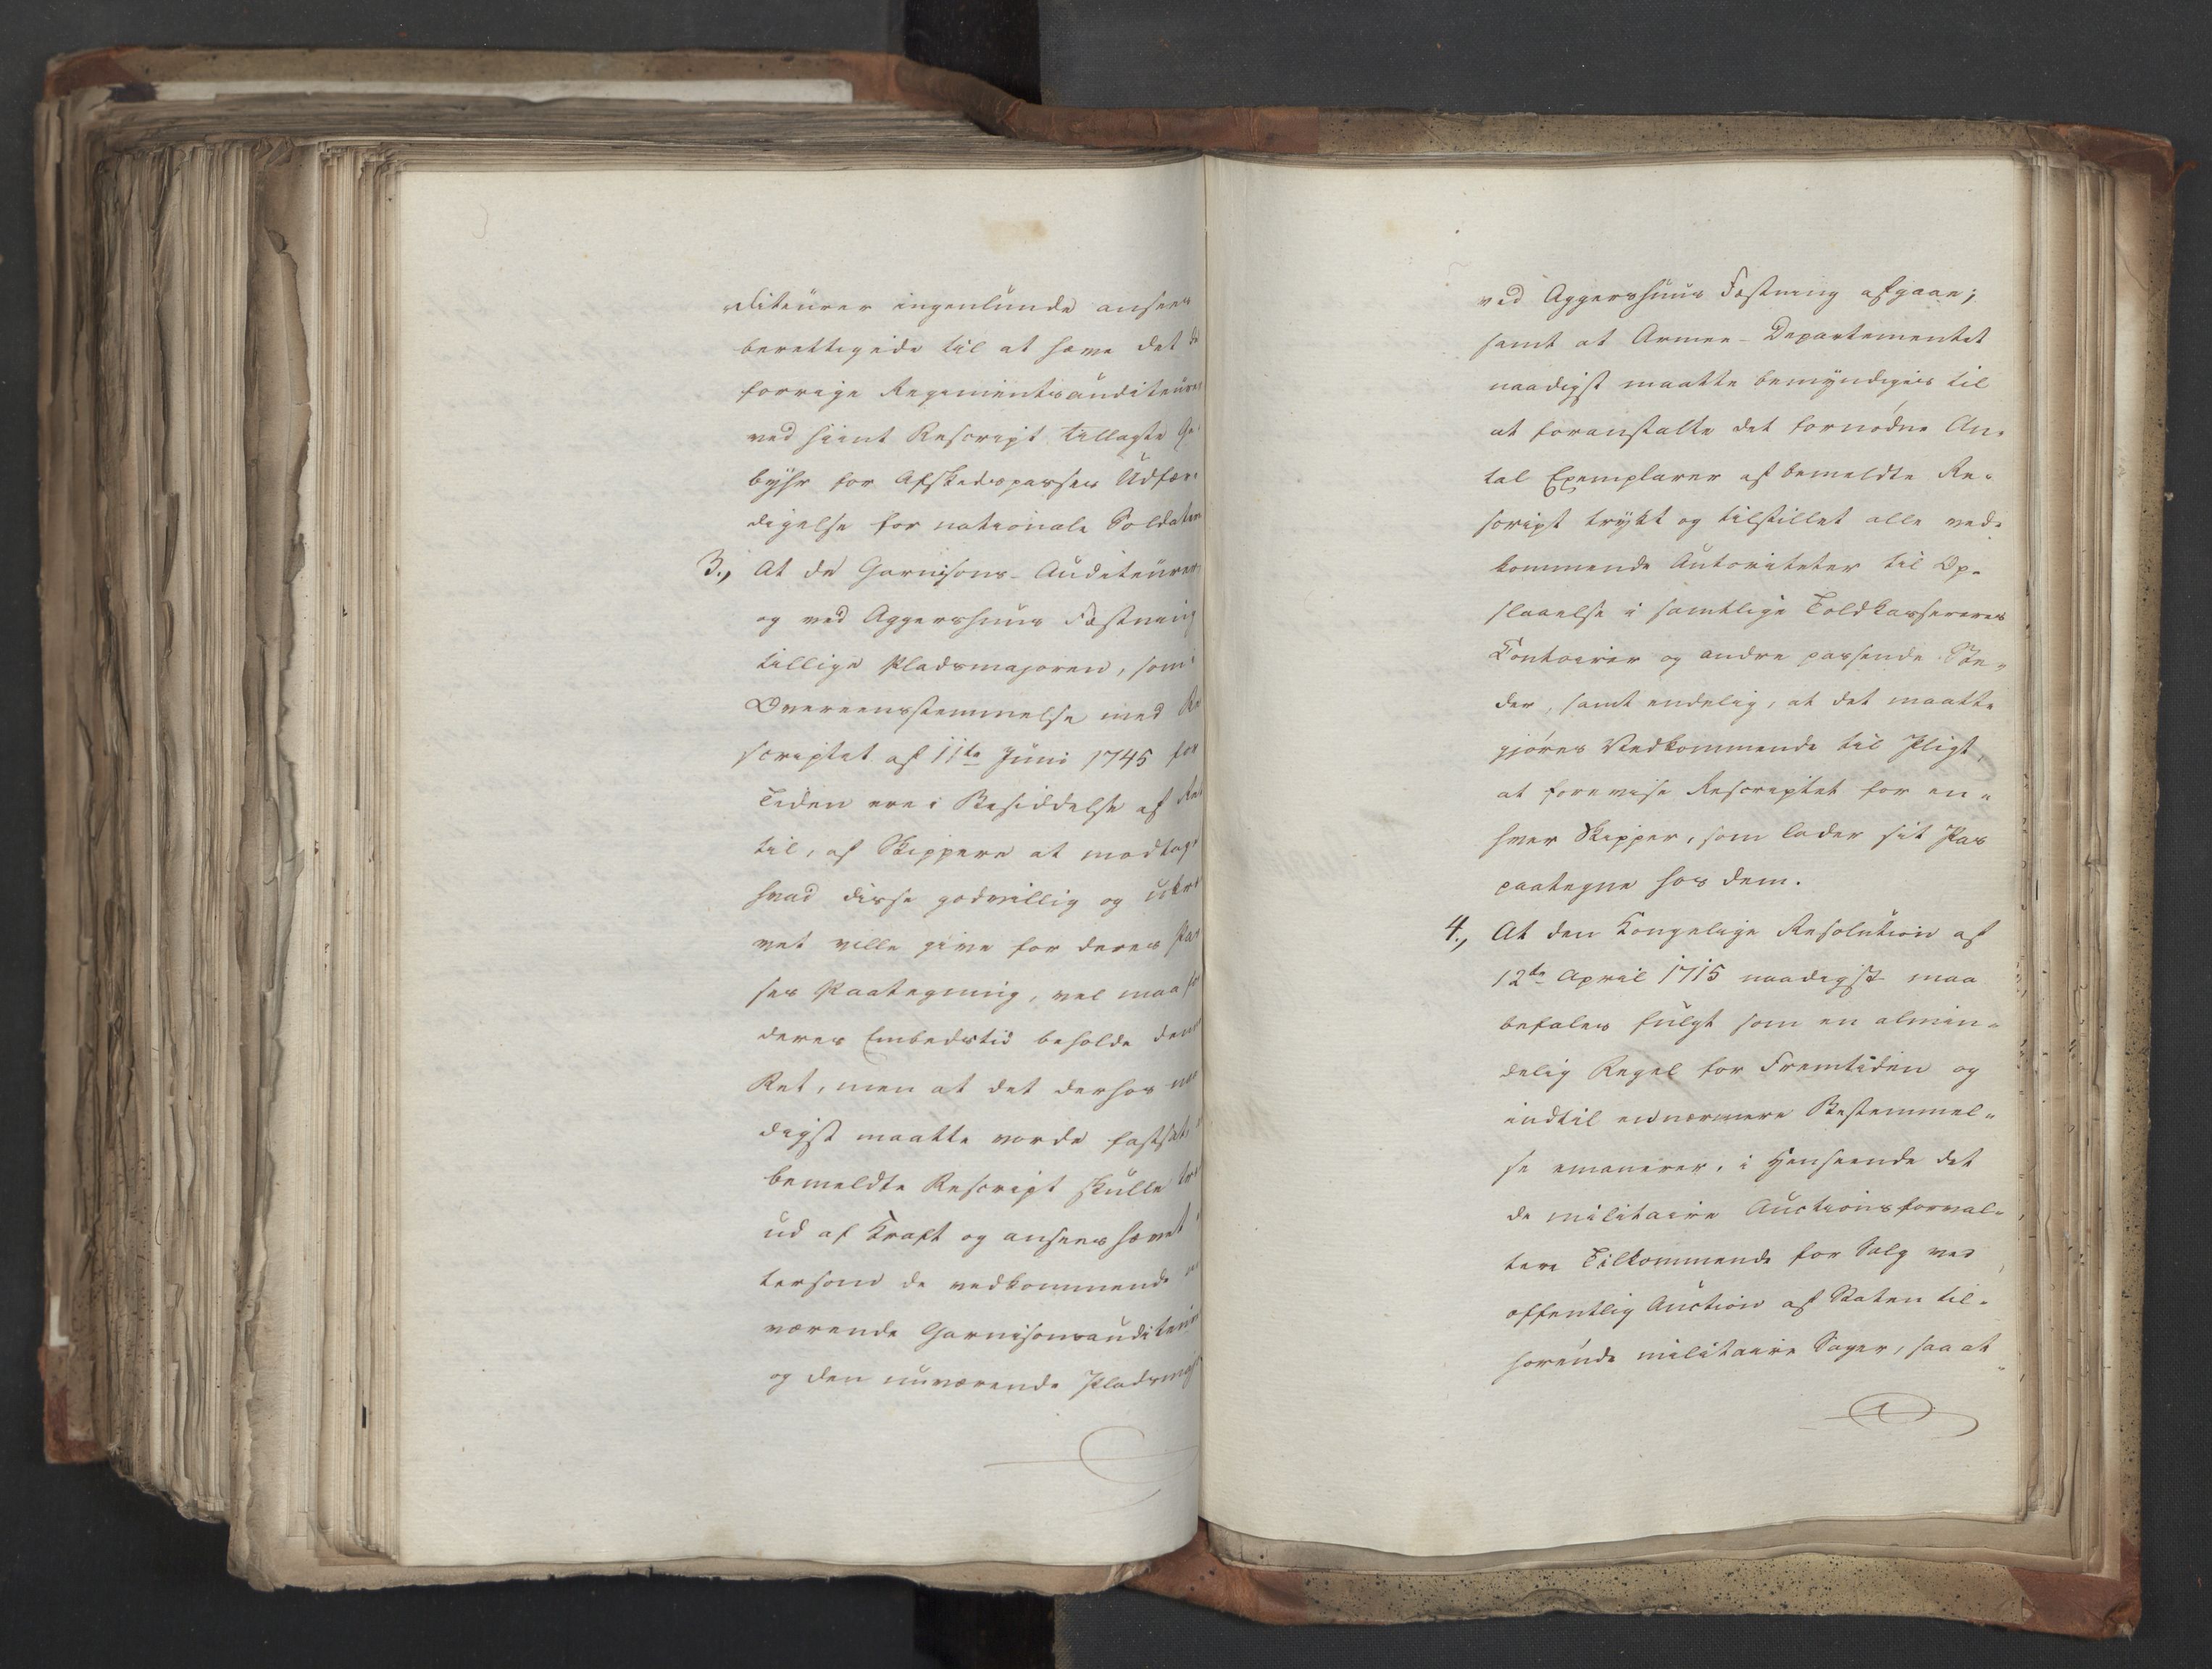 diteurer ingenlunde ansees
berettigede til at hæve det de
forrige Regimentsauditeurer
ved hiint Rescript tillagte Ge-
byhr for Afskedspasses Udfær-
digelse for nationale Soldater
3., At de Garnisons-Auditeurer,
og ved Aggershuus Fæstning
tillige Pladsmajoren, som i
Overeensstemmelse med Re
scriptet af 11te Juni 1745 for
Tiden ere i Besiddelse af Ret
til, af Skippere at modtage
hvad disse godvillig og ukræ
vet ville give for deres Pas
ses Paategning, vel maa for
deres Embedstid beholde denne
Ret, men at det derhos naa
digst maatte vorde fastsat, at
bemeldte Rescript skulle træ
ud af Kraft og ansees hævet ef
tersom de vedkommende nu
værende Garnisonsauditeurer
og den nuværende Pladsmajor
ved Aggershuus Fæstning afgaae;
samt at Armee-Departementet
naadigst maatte bemyndiges til
at foranstalte det fornødne An-
tal Exemplarer af bemeldte Re-
script trykt og tilstillet alle ved-
kommende Autoriteter til Op-
slaaelse i samtlige Toldkassereres
Contoirer og andre passende Ste-
der, samt endelig, at det maatte
gjøres Vedkommende til Pligt,
at forevise Rescriptet for en-
hver Skipper, som lader sit Pas
paategne hos dem.
4., At den Kongelige Resolution af
12te April 1715 naadigst maa
befales fulgt som en almin-
delig Regel for Fremtiden og
indtil en nærmere Bestemmel-
se emanerer, i Henseende det
de militaire Auctionsforval-
tere Tilkommende for Salg ved
offentlig Auction af Staten til-
hørende militaire Sager, saa at